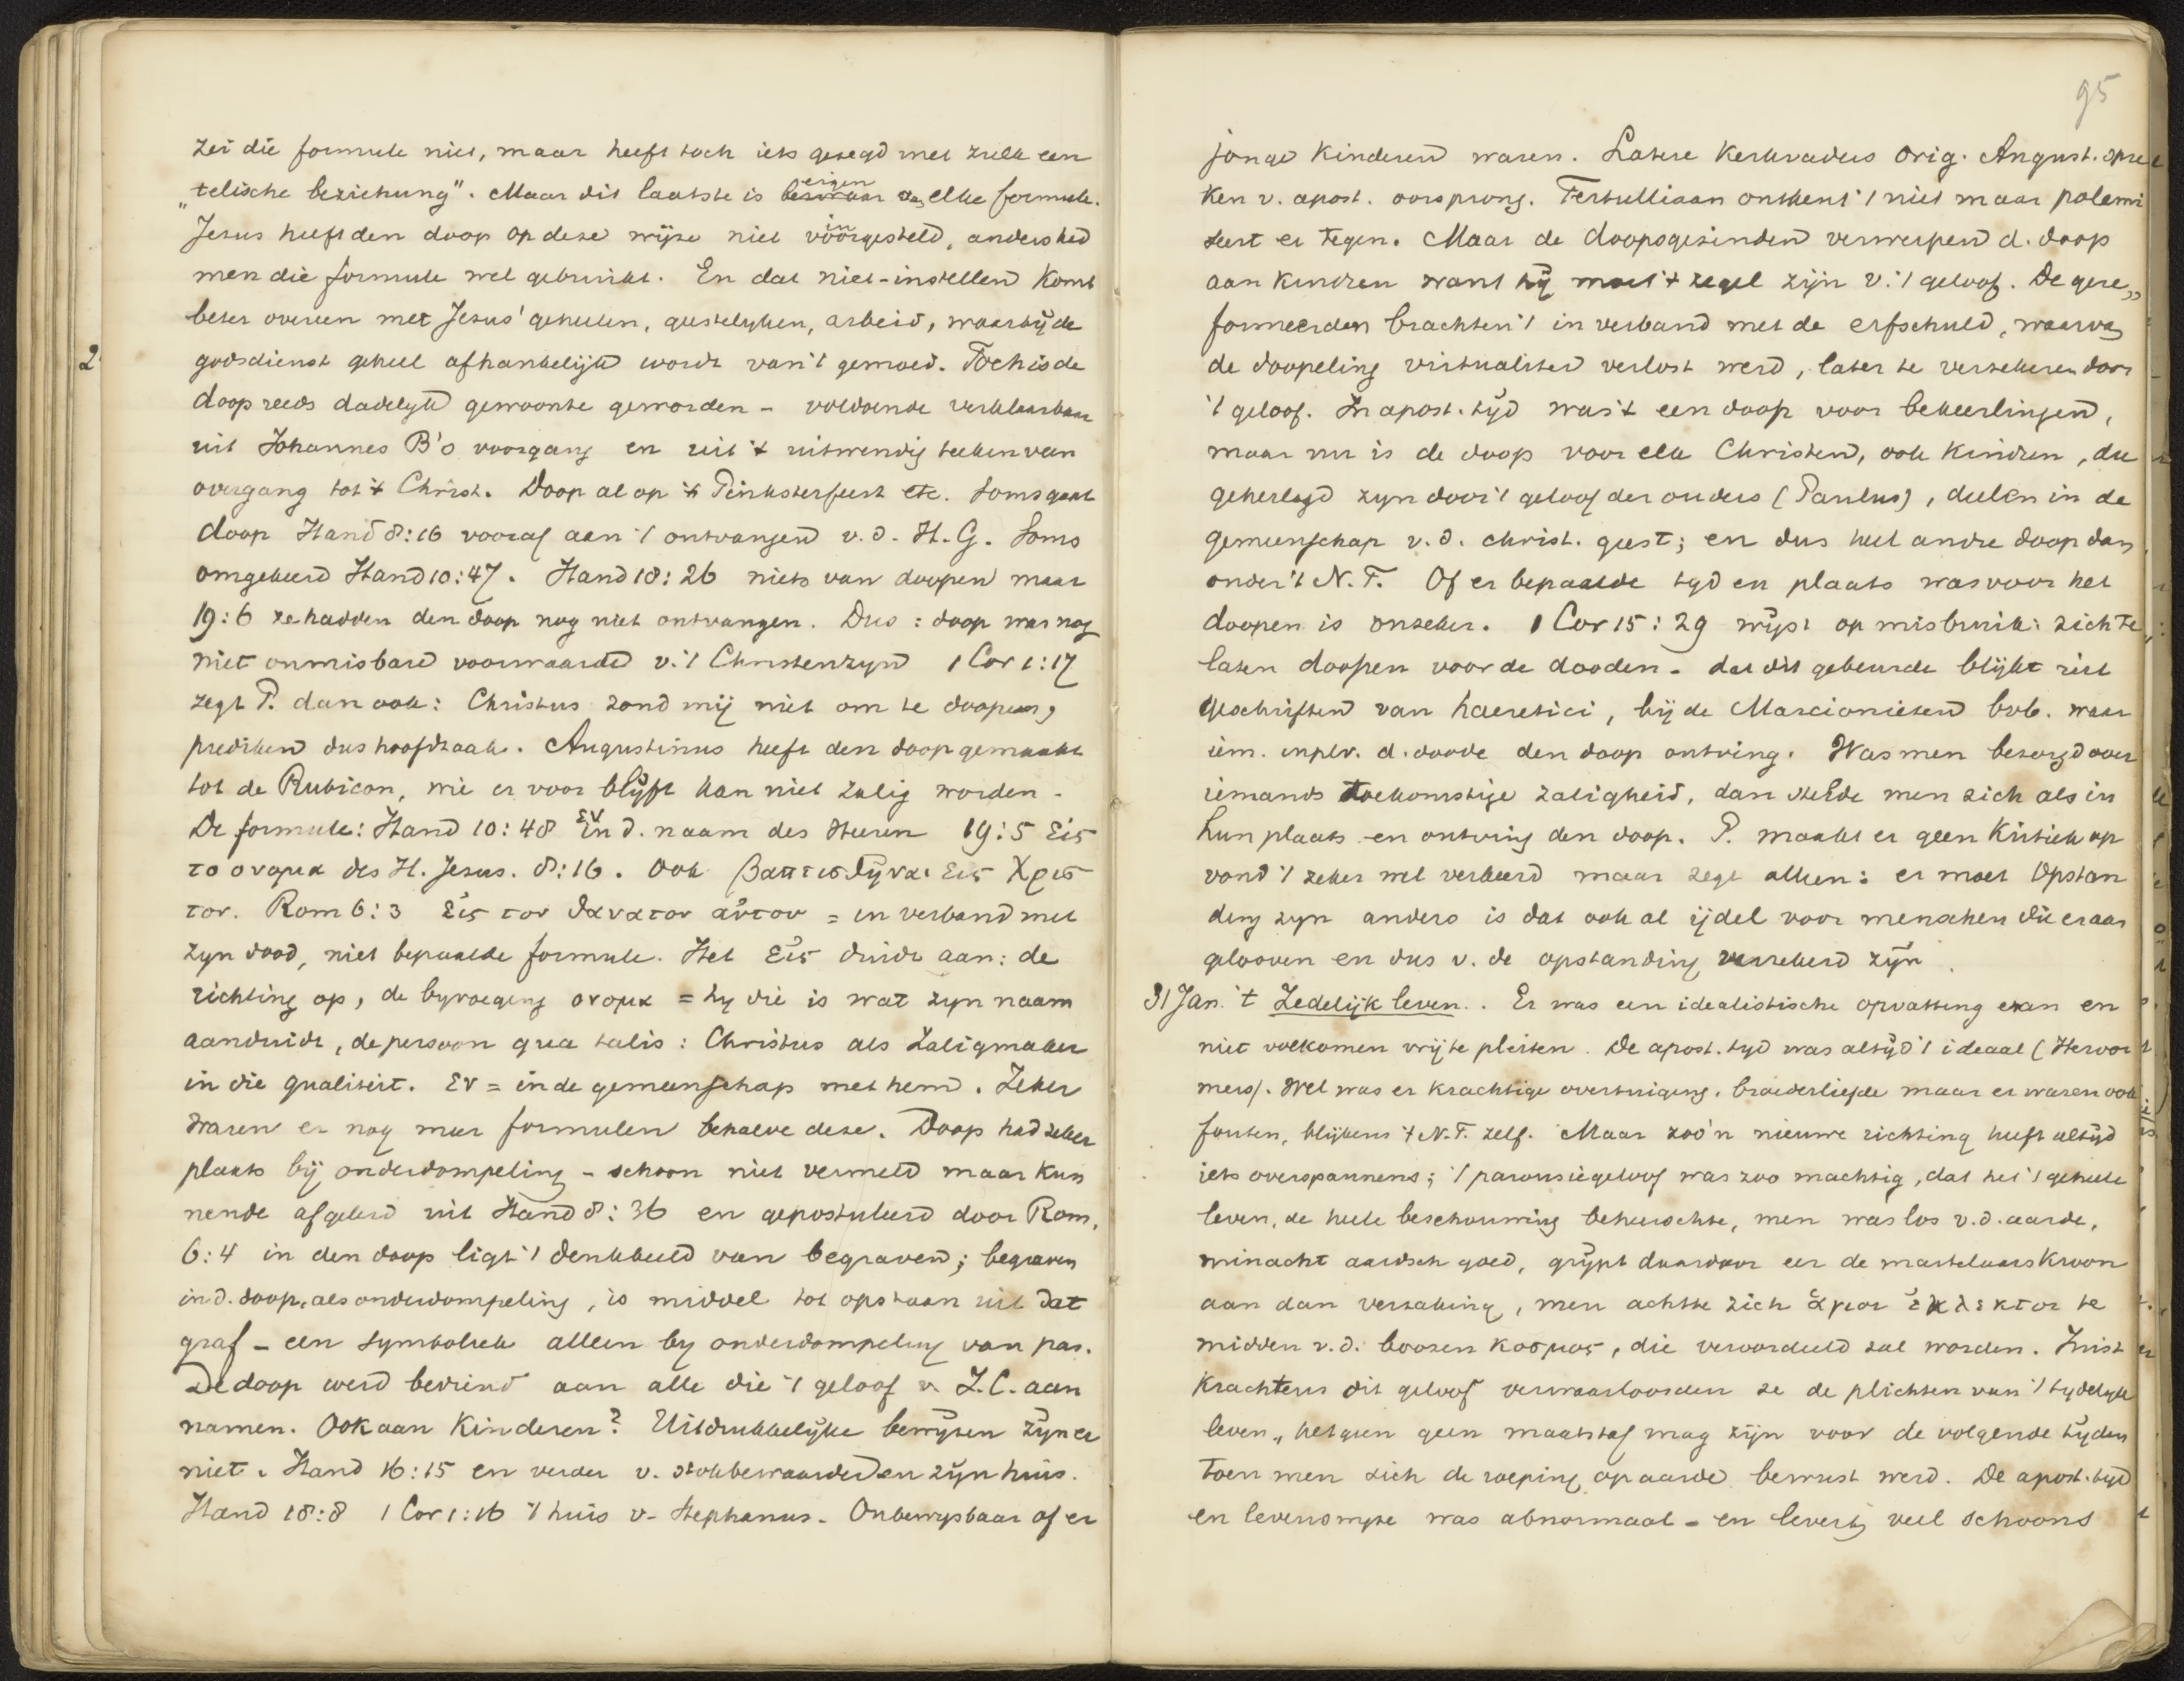 zei die formule niet, maar heeft toch iets gezegd met zulk een
„telische beziehung". Maar dit laatste is eigen elke formule.
Jezus heeft den doop op deze wijze niet ingesteld, anders had
men die formule wel gebruikt. En dat niet-instellen komt
beter overeen met Jezus' geheelen, geestelyken, arbeid, waarbij de
2
godsdienst geheel afhankelijk wordt van 't gemoed. Toch is de
doop reeds dadelyk gewoonte geworden - voldoende verklaarbaar
uit Johannes B's voorgang en uit 't uitwendig teeken van
overgang tot 't Christ. Doop al op 't Pinksterfeest etc. Soms gaat
doop Hand 8:16 vooraf aan 't ontvangen v.d. H.G. Soms
omgekeerd Hand 10:47. Hand 18:26 niets van doopen maar
19:6 ze hadden den doop nog niet ontvangen. Dus: doop was nog
niet onmisbare voorwaarde v. 't Christenzyn 1 Cor 1:17
zegt P. dan ook: Christus zond mij niet om te doopen,
prediken dus hoofdzaak. Augustinus heeft den doop gemaakt
tot de Rubicon, wie er voor blijft kan niet zalig worden.
De formule: Hand 10:48 ἐν in d. naam des Heeren 19:5 εἰς
το ονομα des H. Jezus. 8:16. Ook βαπτισθῆναι εἰς Χρισ
τον. Rom 6:3 εἰς τον θανατον αὐτου = in verband met
zyn dood, niet bepaalde formule. Het εἰς duidt aan: de
richting op, de byvoeging ονομα = hy die is wat zyn naam
aanduidt, de persoon qua talis: Christus als Zaligmaker
in die qualiteit. εν = in de gemeenschap met hem. Zeker
waren er nog meer formulen behalve deze. Doop had zeker
plaats bij onderdompeling - schoon niet vermeld maar kun
nende afgeleid uit Hand 8:36 en gepostuleerd door Rom.
6:4 in den doop ligt 't denkbeeld van begraven; begraven
in d. doop, als onderdompeling, is middel tot opstaan uit dat
graf - een symboliek alleen by onderdompeling van pas.
De doop werd bediend aan alle die 't geloof v. J.C. aan
namen. Ook aan kinderen? Uitdrukkelijke bewijzen zijn er
niet. Hand 16:15 en verder v. stokbewaarder en zijn huis.
Hand 18:8 1 Cor 1:16 't huis v. Stephanus. Onbewysbaar of er
95
jonge kinderen waren. Latere kerkvaders Orig. August. spre
ken v. apost. oorsprong. Tertulliaan ontkent 't niet maar polemi
seert er tegen. Maar de doopsgezinden verwerpen d. doop
aan kindren want hij moet 't zegel zijn v. 't geloof. De gere„
formeerden brachten 't in verband met de erfschuld, waarvan
de doopeling virtualiter verlost werd, later te verzekeren door
't geloof. In apost. tijd was 't een doop voor bekeerlingen,
maar nu is de doop voor elk Christen, ook kindren, die
geheiligd zyn door 't geloof der ouders (Paulus), deelen in de
gemeenschap v.d. christ. geest; en dus heel andre doop dan
onder 't N.T. Of er bepaalde tyd en plaats was voor het
doopen is onzeker. 1 Cor 15:29 wijst op misbruik: zich te
laten doopen voor de dooden. dat dit gebeurde blijkt uit
geschriften van haeretici, bij de Marcionieten bvb. waar
iem. in plv. d. doode den doop ontving. Was men bezorgd over
iemands toekomstige zaligheid, dan stelde men zich als in
hun plaats en ontving den doop. P. maakt er geen kritiek op
vond 't zeker wel verkeerd maar zegt alleen: er moet opstan
ding zyn anders is dat ook al ijdel voor menschen die eraan
gelooven en dus v. de opstanding verzekerd zijn.
31 Jan. 't Zedelijk leven. Er was een idealistische opvatting eraan en
niet volkomen vrij te pleiten. De apost. tyd was altijd 't ideaal (Hervor
mers). Wel was er krachtige overtuiging, broederliefde maar er waren ook
fouten, blijkens 't N.T. zelf. Maar zoo'n nieuwe richting heeft altijd
iets overspannens; 't parousiegeloof was zoo machtig, dat het 't geheele
leven, de heele beschouwing beheerschte, men was los v.d. aarde,
minacht aardsch goed, grijpt daardoor eer de martelaarskroon
aan dan verzaking, men achtte zich ἁγιον ἐκλεκτον te
midden v.d. boozen κοσμος, die veroordeeld zal worden. Juist
krachtens dit geloof verwaarloosden ze de plichten van 't tydelyk
leven, hetgeen geen maatstaf mag zijn voor de volgende tijden
toen men zich de roeping op aarde bewust werd. De apost. tyd
en levenswyze was abnormaal - en levert veel schoons